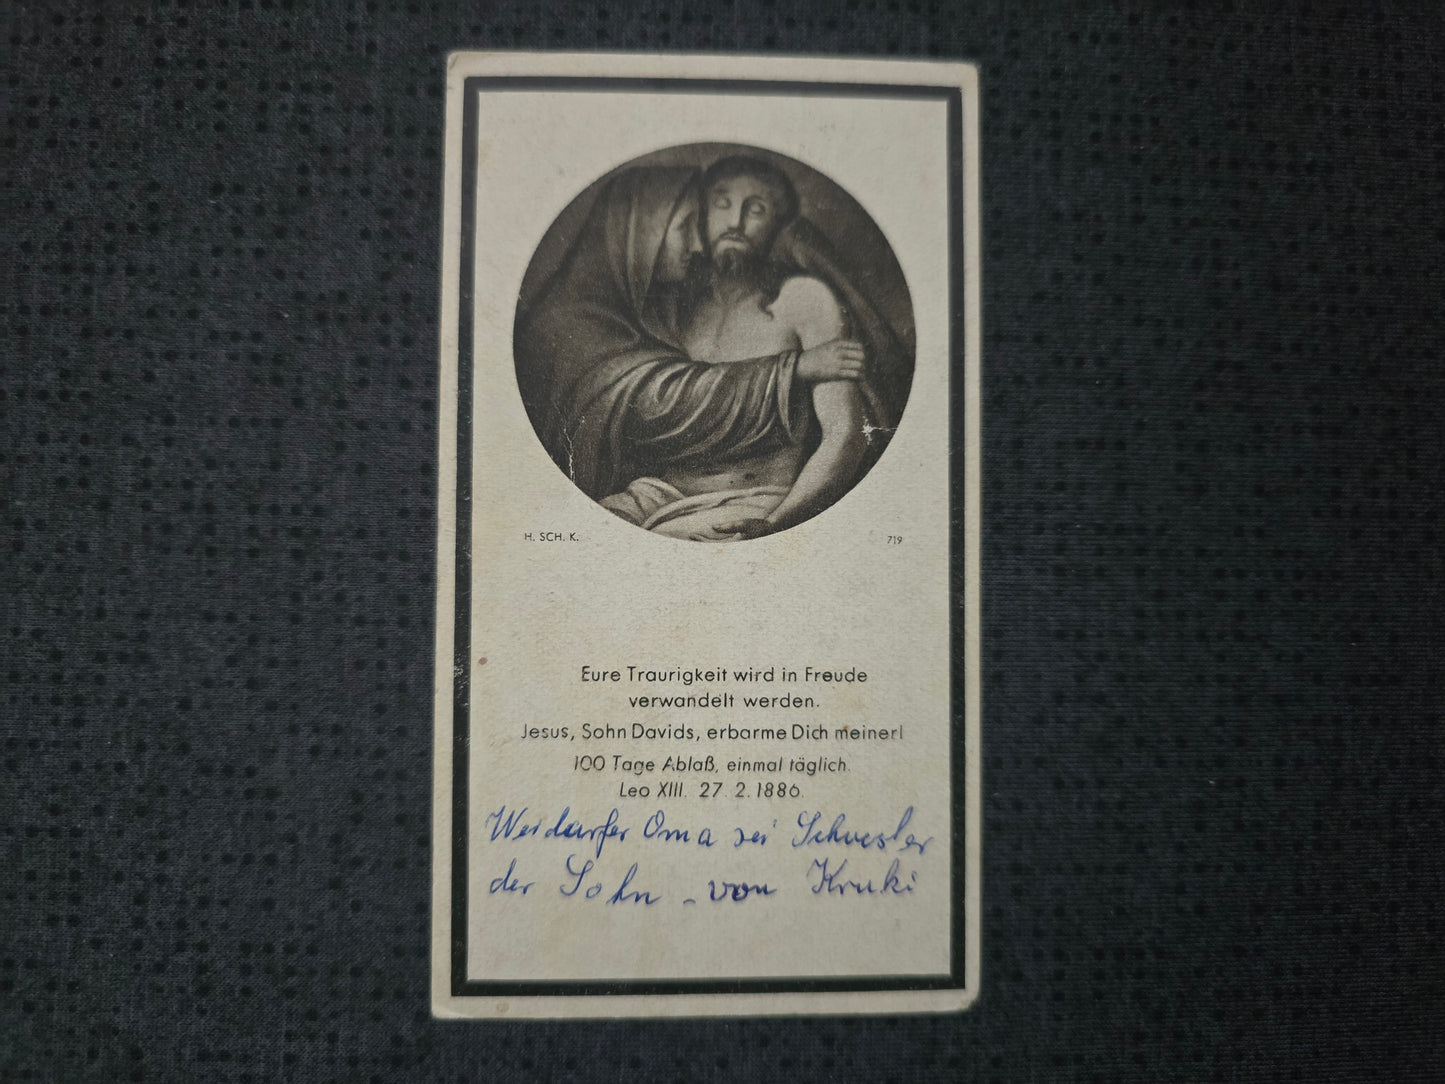 H. SCH. K.
719
Eure Traurigkeit wird in Freude
verwandelt werden.
Jesus, Sohn Davids, erbarme Dich meiner!
100 Tage Ablaß, einmal täglich.
Leo XIII. 27. 2. 1886.
Oma Schwester
der Sohn - von Kruki